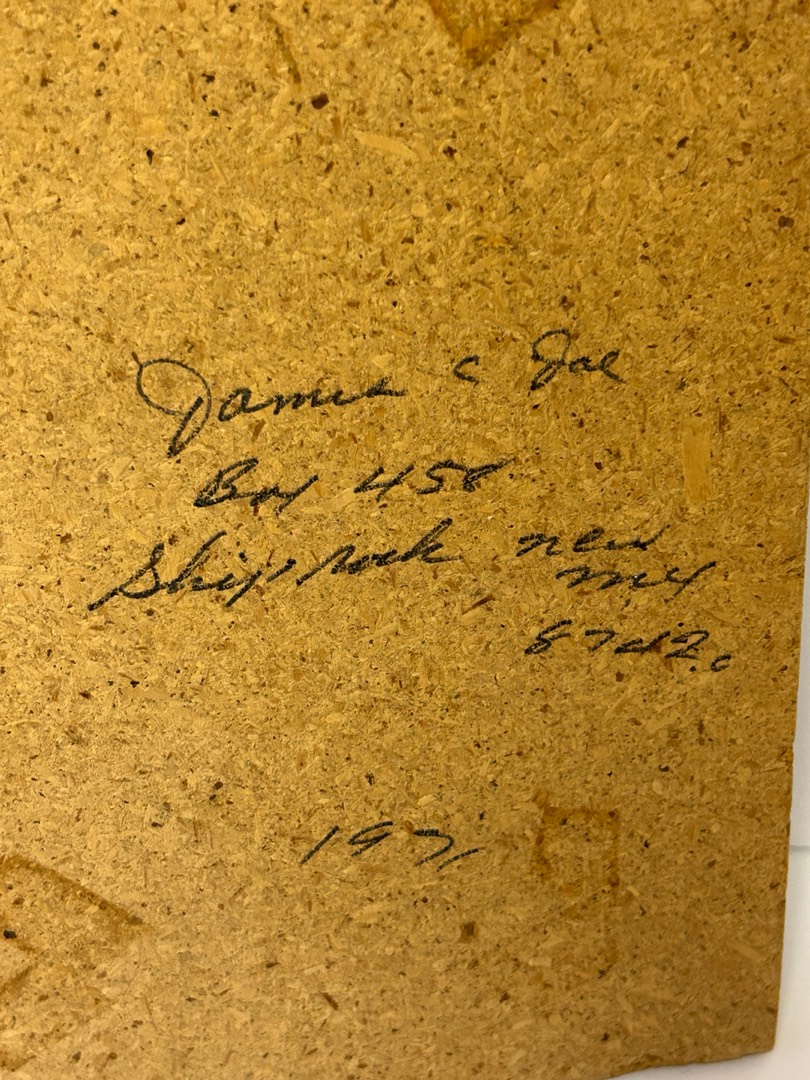 James C Joe
Box 458
Shiprock New
Mex
87420
1971